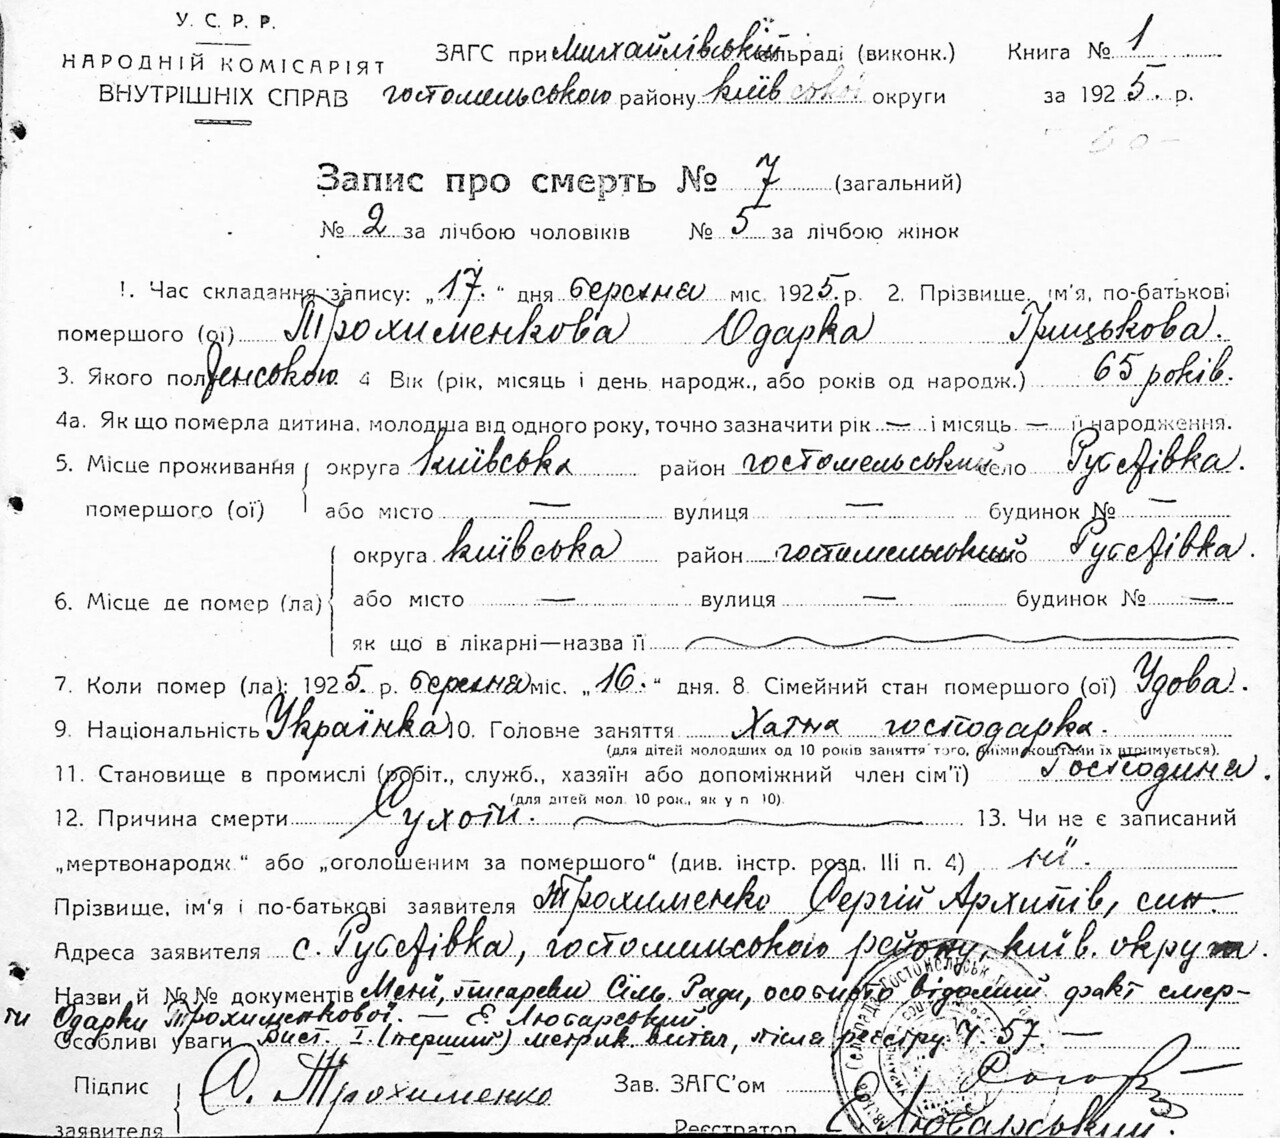 У. С. Р. Р.
НАРОДНІЙ КОМІСАРІЯТ
ВНУТРІШНІХ СПРАВ
ЗАГС при Михайлівській сільраді (виконк.)
гостомельського району київської округи
Книга № 1
за 1925. р.
Запис про смерть № 7 (загальний)
№ 2 за лічбою чоловіків № 5 за лічбою жінок
1. Час складання запису: „17.“ дня березня міс. 1925. р. 2. Прізвище, ім'я, по-батькові
помершого (ої) Трохименкова Одарка Грицькова.
3. Якого пол женського. 4 Вік (рік, місяць і день народж., або років од народж.) 65 років.
4а. Як що померла дитина, молодша від одного року, точно зазначити рік — і місяць — її народження.
5. Місце проживання помершого (ої) округа київська район гостомельський село Рубежівка.
або місто — вулиця — будинок № —
6. Місце де помер (ла) округа київська район гостомельський село Рубежівка.
або місто — вулиця — будинок № —
як що в лікарні—назва її
7. Коли помер (ла): 1925. р. березня міс. „16.“ дня. 8. Сімейний стан помершого (ої) Удова.
9. Національність Українка 10. Головне заняття Хатня господарка.
(для дітей молодших од 10 років заняття того, чиїми коштами їх втримується).
11. Становище в промислі (робіт., служб., хазяїн або допоміжний член сім'ї) Господиня.
(для дітей мол. 10 рок., як у п 10).
12. Причина смерти Сухоти. 13. Чи не є записаний
„мертвонародж.“ або „оголошеним за помершого“ (див. інстр. розд. III п. 4) ні.
Прізвище, ім'я і по-батькові заявителя Трохименко Сергій Архипів, син.
Адреса заявителя с. Рубежівка, гостомельського району, київ. округи.
Назви й №№ документів Мені, писареві Сіль. Ради, особисто відомий факт смер-
ти Одарки Трохименкової. — Е. Любарський.
Особливі уваги Вист. I. (перший) метрик. витяг, після реєстру ч. 57. —
Підпис заявителя С. Трохименко
Зав. ЗАГС'ом
Реєстратор Е. Любарський.